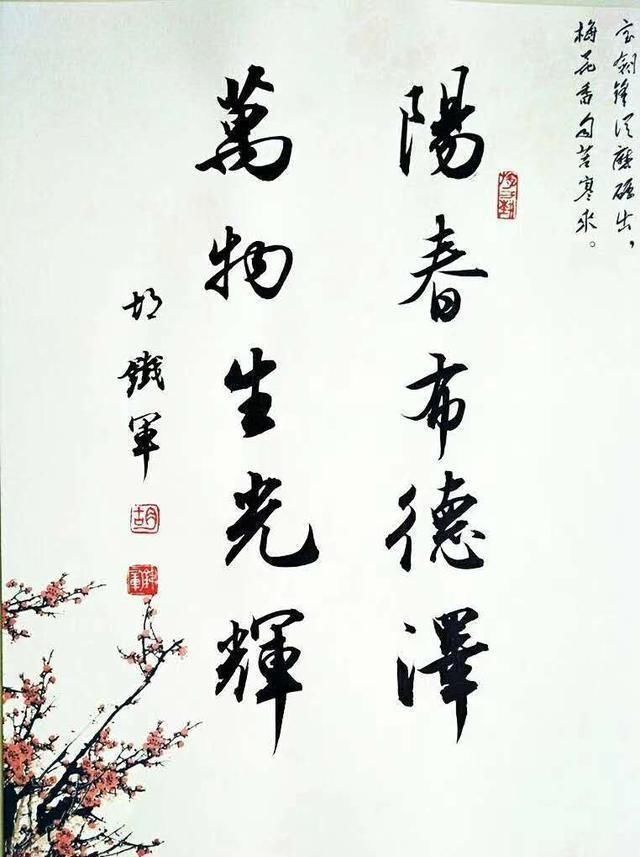 宝剑锋从磨砺出，
梅花香自苦寒来。
陽春布德澤
萬物生光輝
胡鐵軍